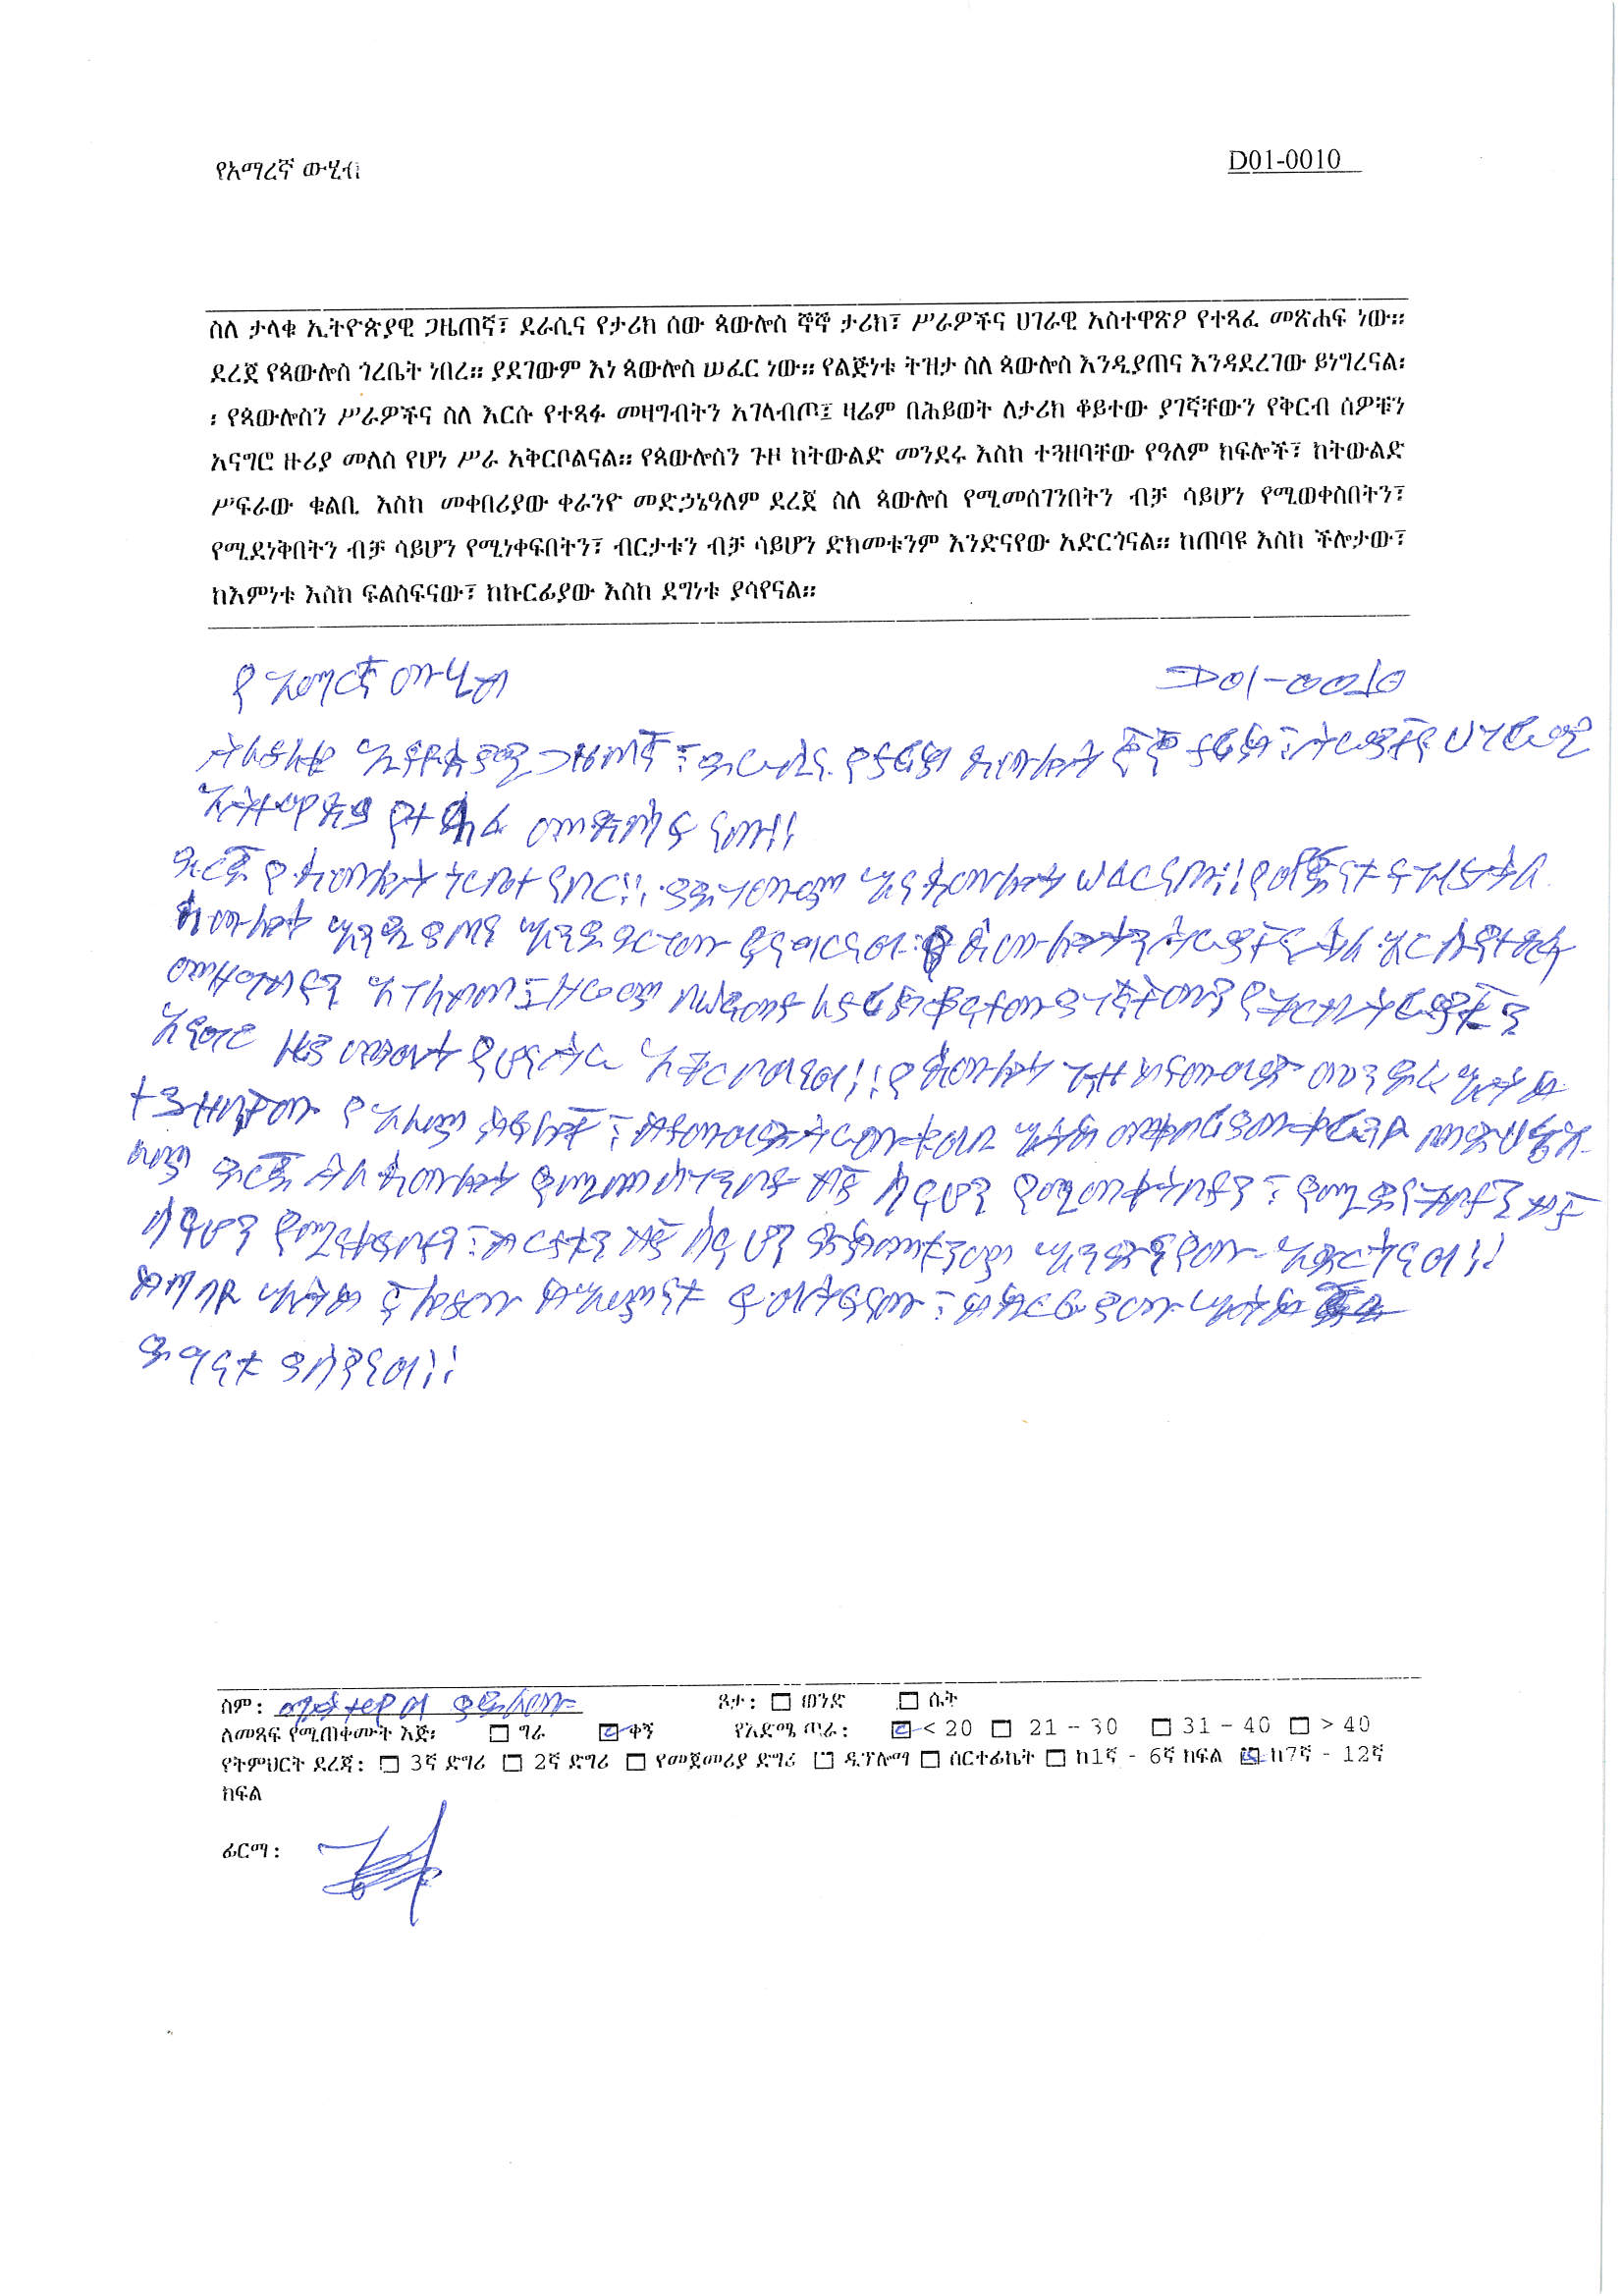 የአማረኛ ውሂብ
D01-0010
ስለ ታላቁ ኢትዮጵያዊ ጋዜጠኛ፣ ደራሲና የታሪክ ሰው ጳውሎስ ኞኞ ታሪክ፣ ሥራዎችና ሀገራዊ አስተዋጽዖ የተጻፈ መጽሐፍ ነው።
ደረጀ የጳውሎስ ጎረቤት ነበረ። ያደገውም እነ ጳውሎስ ሠፈር ነው። የልጅነቱ ትዝታ ስለ ጳውሎስ እንዲያጠና እንዳደረገው ይነግረናል፡
፡ የጳውሎስን ሥራዎችና ስለ እርሱ የተጻፉ መዛግብትን አገላብጦ፤ ዛሬም በሕይወት ለታሪክ ቆይተው ያገኛቸውን የቅርብ ሰዎቹን
አናግሮ ዙሪያ መለስ የሆነ ሥራ አቅርቦልናል። የጳውሎስን ጉዞ ከትውልድ መንደሩ እስከ ተጓዘባቸው የዓለም ክፍሎች፣ ከትውልድ
ሥፍራው ቁልቢ እስከ መቀበሪያው ቀራንዮ መድኃኔዓለም ደረጀ ስለ ጳውሎስ የሚመሰገንበትን ብቻ ሳይሆነ የሚወቀስበትን፣
የሚደነቅበትን ብቻ ሳይሆን የሚነቀፍበትን፣ ብርታቱን ብቻ ሳይሆን ድክመቱንም እንድናየው አድርጎናል። ከጠባዩ እስከ ችሎታው፣
ከእምነቱ እስከ ፍልስፍናው፣ ከኩርፊያው እስከ ደግነቱ ያሳየናል።
የአማርኛ ውሂብ
D01-0010
ስለ ታላቁ ኢትዮጵያዊ ጋዜጠኛ፣ ደራሲና የታሪክ ጳውሎስ ኞኞ ታሪክ፣ ሥራዎችና ሀገራዊ
አስተዋጽዖ የተጻፈ መጽሐፍ ነው።
ደረጀ የጳውሎስ ጎረቤት ነበር። ያደገውም እነ ጳውሎስ ሠፈር ነው። የልጅነቱ ትዝታ ስለ
ጳውሎስ እንዲያጠና እንዳደረገው ይነግረናል። የጳውሎስን ሥራዎችና ስለ እርሱ የተጻፉ
መዛግብትን አገላብጦ፤ ዛሬም በሕይወት ለታሪክ ቆይተው ያገኛቸውን የቅርብ ሰዎቹን
አናግሮ ዙሪያ መለስ የሆነ ሥራ አቅርቦልናል። የጳውሎስ ጉዞ ከትውልድ መንደሩ እስከ
ተጓዘባቸው የዓለም ክፍሎች፣ ከትውልድ ሥፍራው ቁልቢ እስከ መቀበሪያው ቀራንዮ መድኃኔዓ
ለም ደረጀ ስለ ጳውሎስ የሚመሰገንበት ብቻ ሳይሆን የሚወቀስበትን፣ የሚደነቅበትን ብቻ
ሳይሆን የሚነቀፍበትን፣ ብርታቱን ብቻ ሳይሆን ድክመቱንም እንድናየው አድርጎናል።
ከጠባዩ እስከ ችሎታው ከእምነቱ ፍልስፍናው፣ ከኩርፊያው እስከ
ደግነቱ ያሳየናል።
ስም፡ ጾታ፡ ወንድ ሴት
ለመጻፍ የሚጠቀሙት እጅ፡ ግራ ቀኝ የእድሜ ጣራ፡ < 20 21 – 30 31 – 40 > 40
የትምህርት ደረጃ፡ 3ኛ ድግሪ 2ኛ ድግሪ የመጀመሪያ ድግሪ ዲፕሎማ ሰርተፊኬት ከ1ኛ - 6ኛ ክፍል ከ7ኛ - 12ኛ
ክፍል
ፊርማ፡